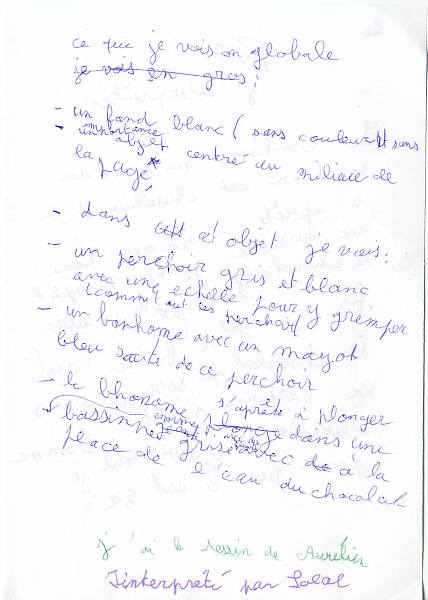 ce que je vois en globale
je vois en gros :
- un fond blanc (sans couleur) et sans
importance
- un objet centré au milieu de
la page
- dans cett cet objet je vois :
- un perchoir gris et blanc
avec une echelle pour y grimper
(comme tout les perchoir)
- un bonhome avec un mayot
bleu saute de ce perchoir
- le bhonome s'aprête à plonger
plonge dans une
bassinne enorme
grise avec de à la
place de l'eau du chocolat
j'ai le dessin de Aurélien
Interpreté par Solal